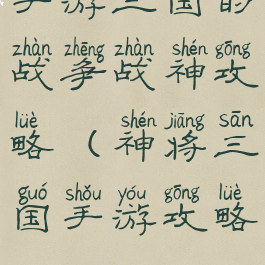 手游三国的
zhàn zhēng zhàn shén gōng
战争战神攻
lüè shén jiāng sān
略（神将三
guó shǒu yóu gōng lüè
国手游攻略